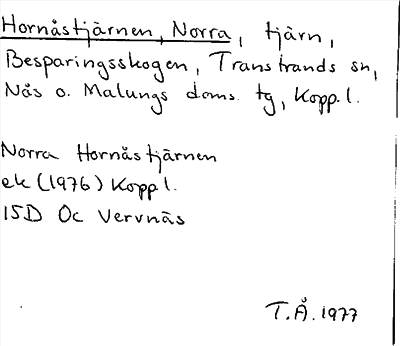 Hornåstjärnen, Norra, tjärn,
Besparingsskogen, Transtrands sn,
Nås o. Malungs doms. tg, Kopp. l.
Norra Hornåstjärnen
ek (1976) Kopp l.
15D Oc Vervnäs
T.Å. 1977